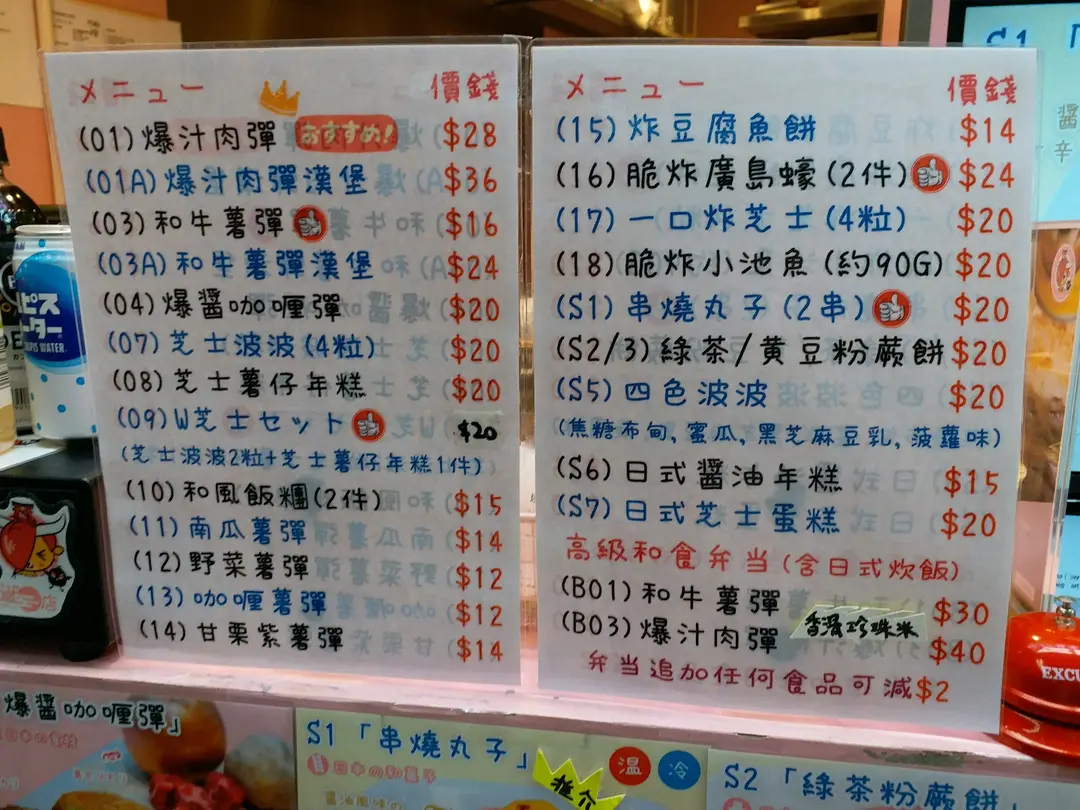 メニュー 價錢
(01)爆汁肉彈 おすすめ! $28
(01A)爆汁肉彈漢堡 $36
(03)和牛薯彈 $16
(03A)和牛薯彈漢堡 $24
(04)爆醬咖喱彈 $20
(07)芝士波波(4粒) $20
(08)芝士薯仔年糕 $20
(09)W芝士セット $20
(芝士波波2粒+芝士薯仔年糕1件)
(10)和風飯糰(2件) $15
(11)南瓜薯彈 $14
(12)野菜薯彈 $12
(13)咖喱薯彈 $12
(14)甘栗紫薯彈 $14
メニュー 價錢
(15)炸豆腐魚餅 $14
(16)脆炸廣島蠔(2件) $24
(17)一口炸芝士(4粒) $20
(18)脆炸小池魚(約90G) $20
(S1)串燒丸子(2串) $20
(S2/3)綠茶/黄豆粉蕨餅 $20
(S5)四色波波 $20
(焦糖布甸,蜜瓜,黑芝麻豆乳,菠蘿味)
(S6)日式醬油年糕 $15
(S7)日式芝士蛋糕 $20
高級和食弁当(含日式炊飯)
(B01)和牛薯彈 $30
香濕珍珠米
(B03)爆汁肉彈 $40
弁当追加任何食品可減$2
S1「
醬
辛
ピス
ーター
PIS WATER
店
EXCU
爆醬咖喱彈」
S1「串燒丸子」
日本の和菓子
温 冷
推介
S2「綠茶粉蕨餅